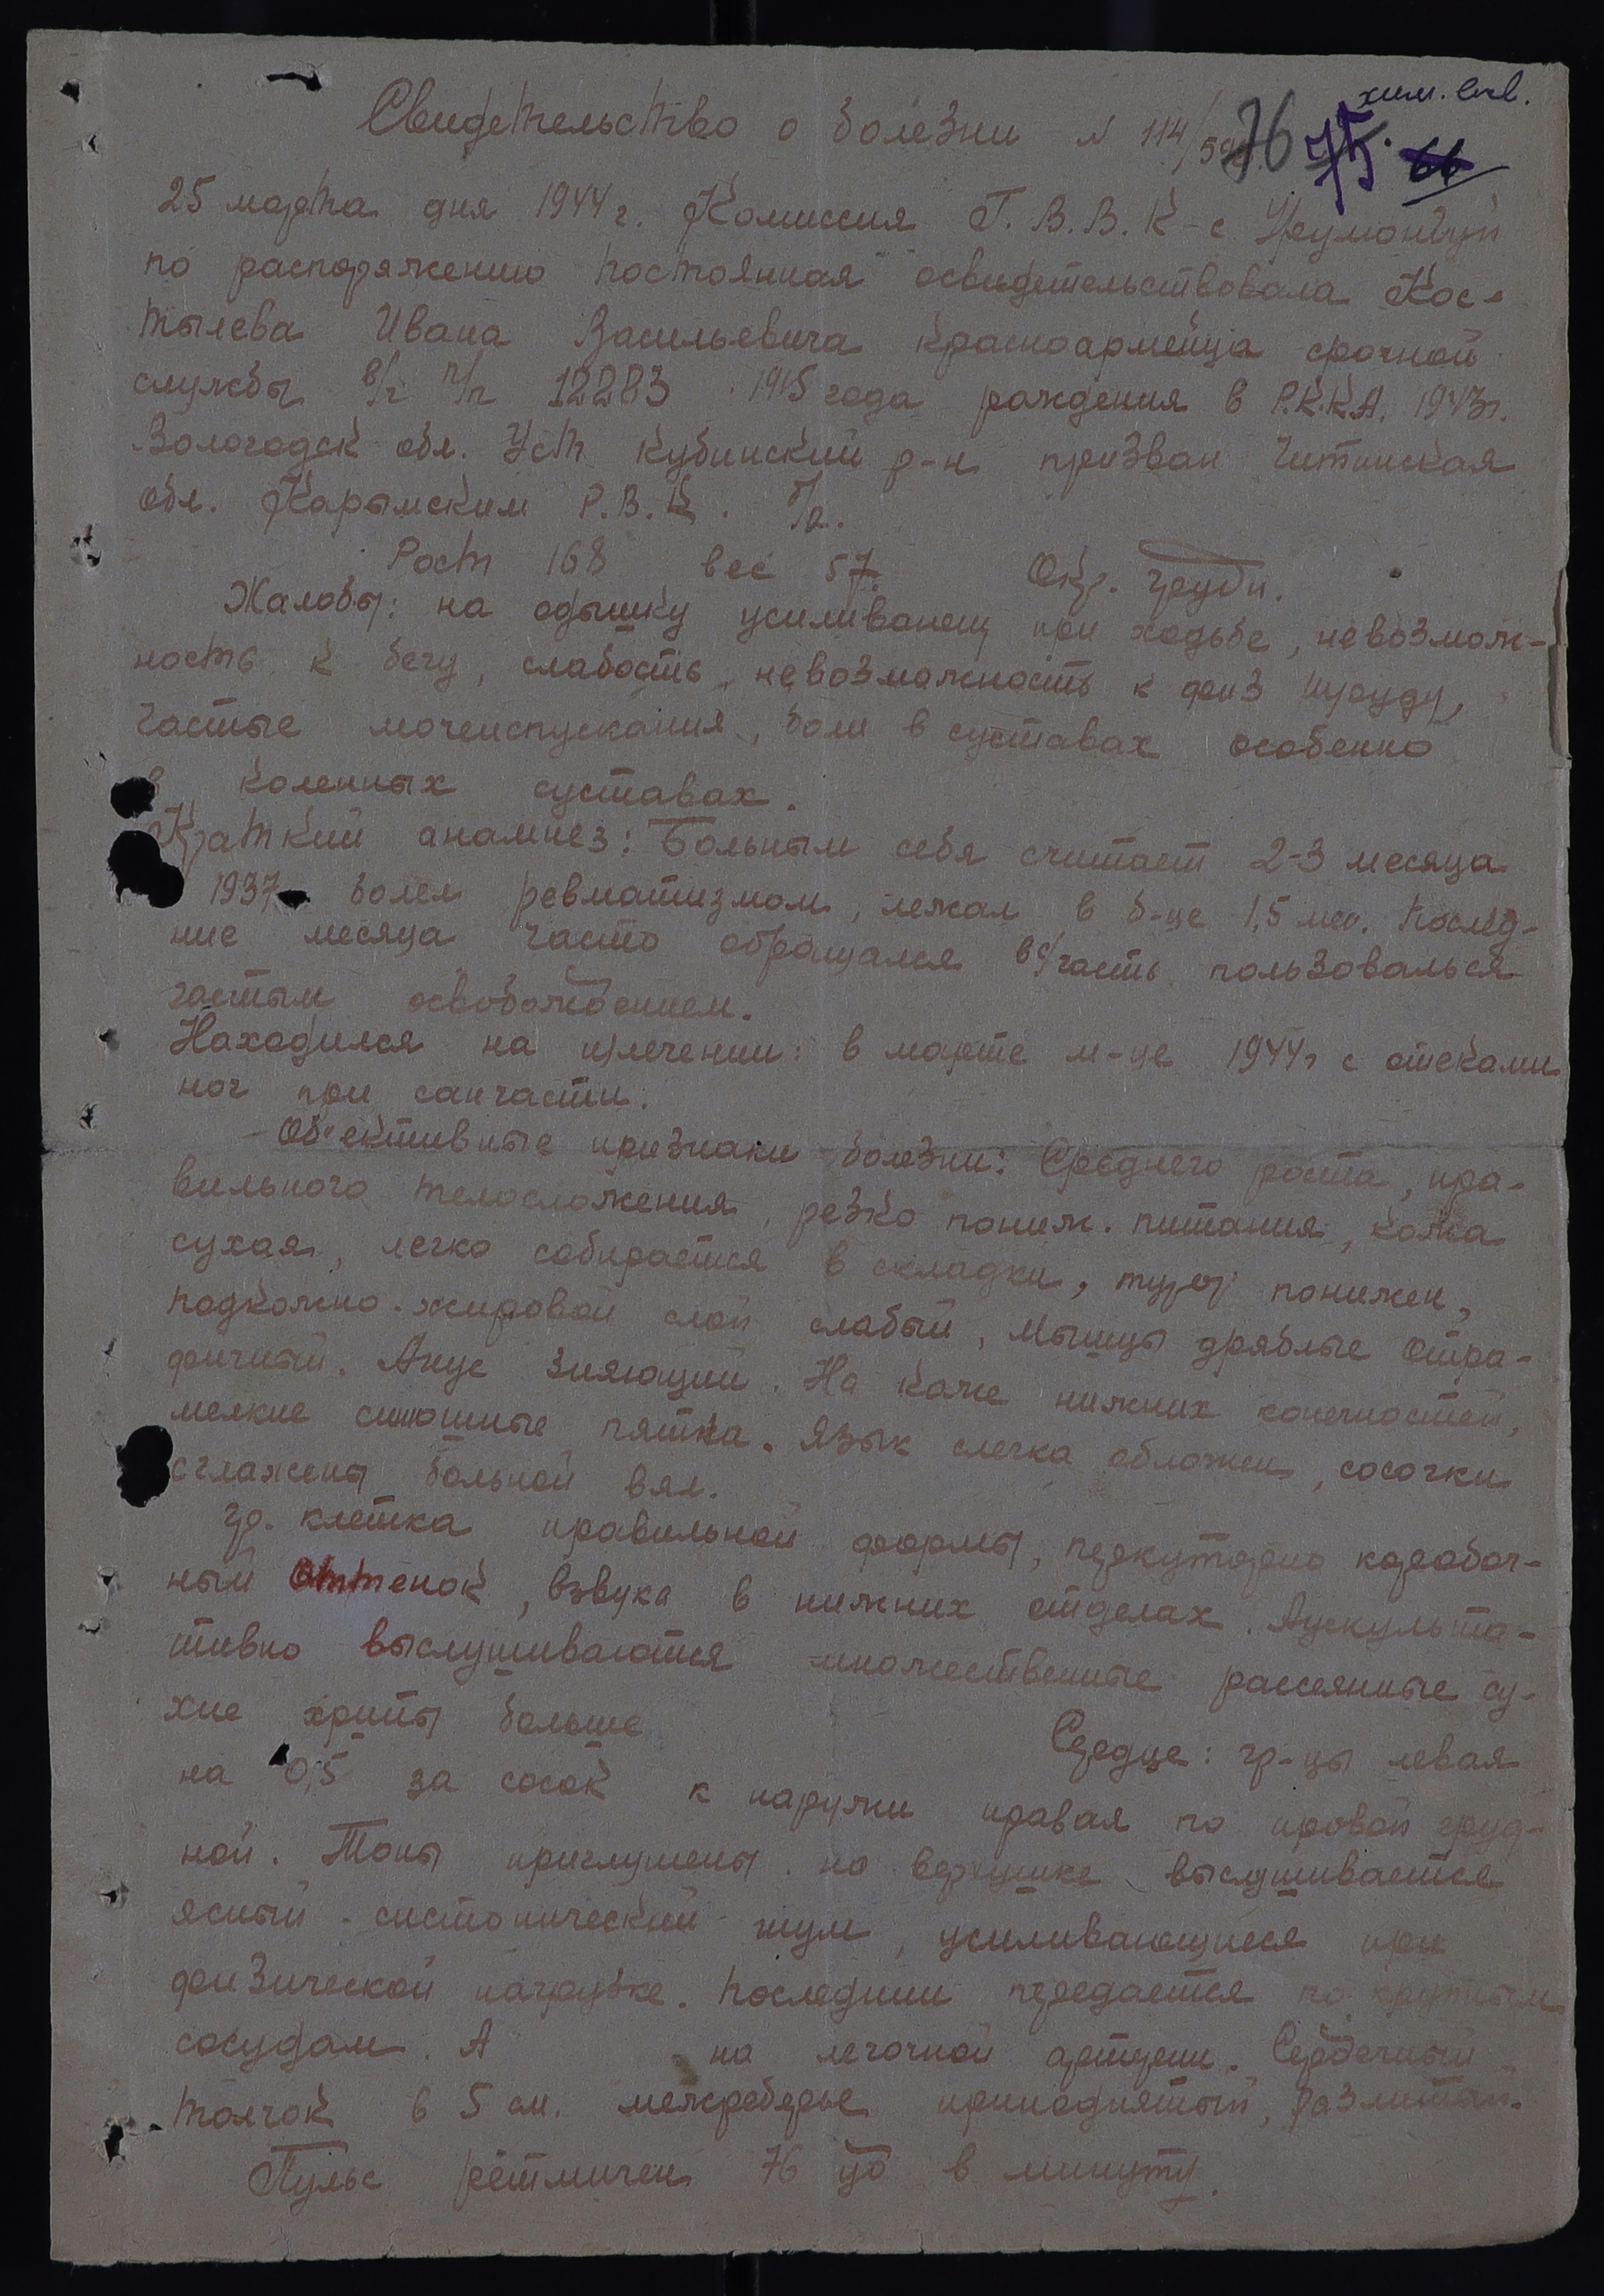 хим.
Свидетельство о болезни N 114/
76 75. 66
25 марта дня 1944 г. Комиссия Г.В.В.К - с.
по распоряжению постоянная освидетельствовала Кос-
тылева Ивана Васильевича красноармейца срочной
службы в/ч п/п 12283 1915 года рождения в Р.К.К.А. 1943г.
Вологодск обл. Уст Кубинский р-н призван Читинская
обл. Карымским Р.В.К. б/п.
Рост 168 вес 57. Окр. груди.
Жалобы: на одышку усиливающ при ходьбе, невозмож-
ность к бегу, слабость, невозможность к физ труду,
частые мочеиспускания, боли в суставах особенно
в коленных суставах.
Краткий анамнез: Больным себя считает 2-3 месяца
1937 болел ревматизмом, лежал в б-це 1,5 мес. послед-
ние месяца часто обращался в с/часть пользовалься
частым освобождением.
Находился на излечении: в марте м-це 1944г с отеками
ног при санчасти.
Об'ективные признаки болезни: Среднего роста, пра-
вильного телосложения, резко пониж. питания, кожа
сухая, легко собирается в складки, тургор понижен,
подкожно-жировой слой слабый, мышцы дряблые отра-
фичный. Анус зияющий. На коже нижних конечностей,
мелкие синюшные пятна. Язык слегка обложен, сосочки
сглажены больной вял.
гр. клетка правильной формы, перкуторно коробоч-
ный оттенок, взвука в нижних отделах. Аускульта-
тивно выслушиваются множественные рассеянные су-
хие хрипы больше
Сердце: гр-цы левая
на 0,5 за сосок к наружи правая по правой груд-
ной. Тоны приглушены на верхушке выслушивается
ясный систонический шум, усиливающиеся при
физической нагрузке. последний передается по крупным
сосудам. А на легочной артерии. Сердечный
толчок в 5 см. межреберье приподнятый, разлитой.
Пульс ретмичен 76 уд в минуту.